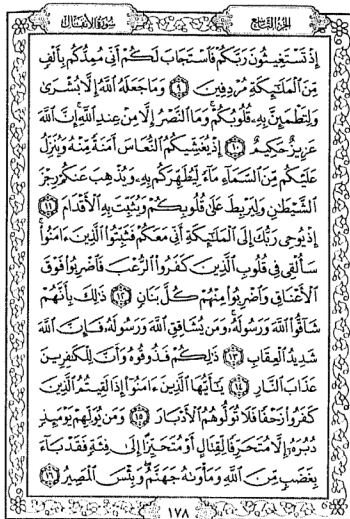 الجزء التاسع سورة الأنفال
إِذْ تَسْتَغِيثُونَ رَبَّكُمْ فَٱسْتَجَابَ لَكُمْ أَنِّي مُمِدُّكُم بِأَلْفٍ
مِّنَ ٱلْمَلَٰٓئِكَةِ مُرْدِفِينَ ٩ وَمَا جَعَلَهُ ٱللَّهُ إِلَّا بُشْرَىٰ
وَلِتَطْمَئِنَّ بِهِۦ قُلُوبُكُمْ وَمَا ٱلنَّصْرُ إِلَّا مِنْ عِندِ ٱللَّهِ إِنَّ ٱللَّهَ
عَزِيزٌ حَكِيمٌ ١٠ إِذْ يُغَشِّيكُمُ ٱلنُّعَاسَ أَمَنَةً مِّنْهُ وَيُنَزِّلُ
عَلَيْكُم مِّنَ ٱلسَّمَآءِ مَآءً لِّيُطَهِّرَكُم بِهِۦ وَيُذْهِبَ عَنكُمْ رِجْزَ
ٱلشَّيْطَٰنِ وَلِيَرْبِطَ عَلَىٰ قُلُوبِكُمْ وَيُثَبِّتَ بِهِ ٱلْأَقْدَامَ ١١
إِذْ يُوحِي رَبُّكَ إِلَى ٱلْمَلَٰٓئِكَةِ أَنِّي مَعَكُمْ فَثَبِّتُوا۟ ٱلَّذِينَ ءَامَنُوا۟
سَأُلْقِي فِي قُلُوبِ ٱلَّذِينَ كَفَرُوا۟ ٱلرُّعْبَ فَٱضْرِبُوا۟ فَوْقَ
ٱلْأَعْنَاقِ وَٱضْرِبُوا۟ مِنْهُمْ كُلَّ بَنَانٍ ١٢ ذَٰلِكَ بِأَنَّهُمْ
شَآقُّوا۟ ٱللَّهَ وَرَسُولَهُۥ وَمَن يُشَاقِقِ ٱللَّهَ وَرَسُولَهُۥ فَإِنَّ ٱللَّهَ
شَدِيدُ ٱلْعِقَابِ ١٣ ذَٰلِكُمْ فَذُوقُوهُ وَأَنَّ لِلْكَٰفِرِينَ
عَذَابَ ٱلنَّارِ ١٤ يَٰٓأَيُّهَا ٱلَّذِينَ ءَامَنُوٓا۟ إِذَا لَقِيتُمُ ٱلَّذِينَ
كَفَرُوا۟ زَحْفًا فَلَا تُوَلُّوهُمُ ٱلْأَدْبَارَ ١٥ وَمَن يُوَلِّهِمْ يَوْمَئِذٍ
دُبُرَهُۥٓ إِلَّا مُتَحَرِّفًا لِّقِتَالٍ أَوْ مُتَحَيِّزًا إِلَىٰ فِئَةٍ فَقَدْ بَآءَ
بِغَضَبٍ مِّنَ ٱللَّهِ وَمَأْوَىٰهُ جَهَنَّمُ وَبِئْسَ ٱلْمَصِيرُ ١٦
١٧٨